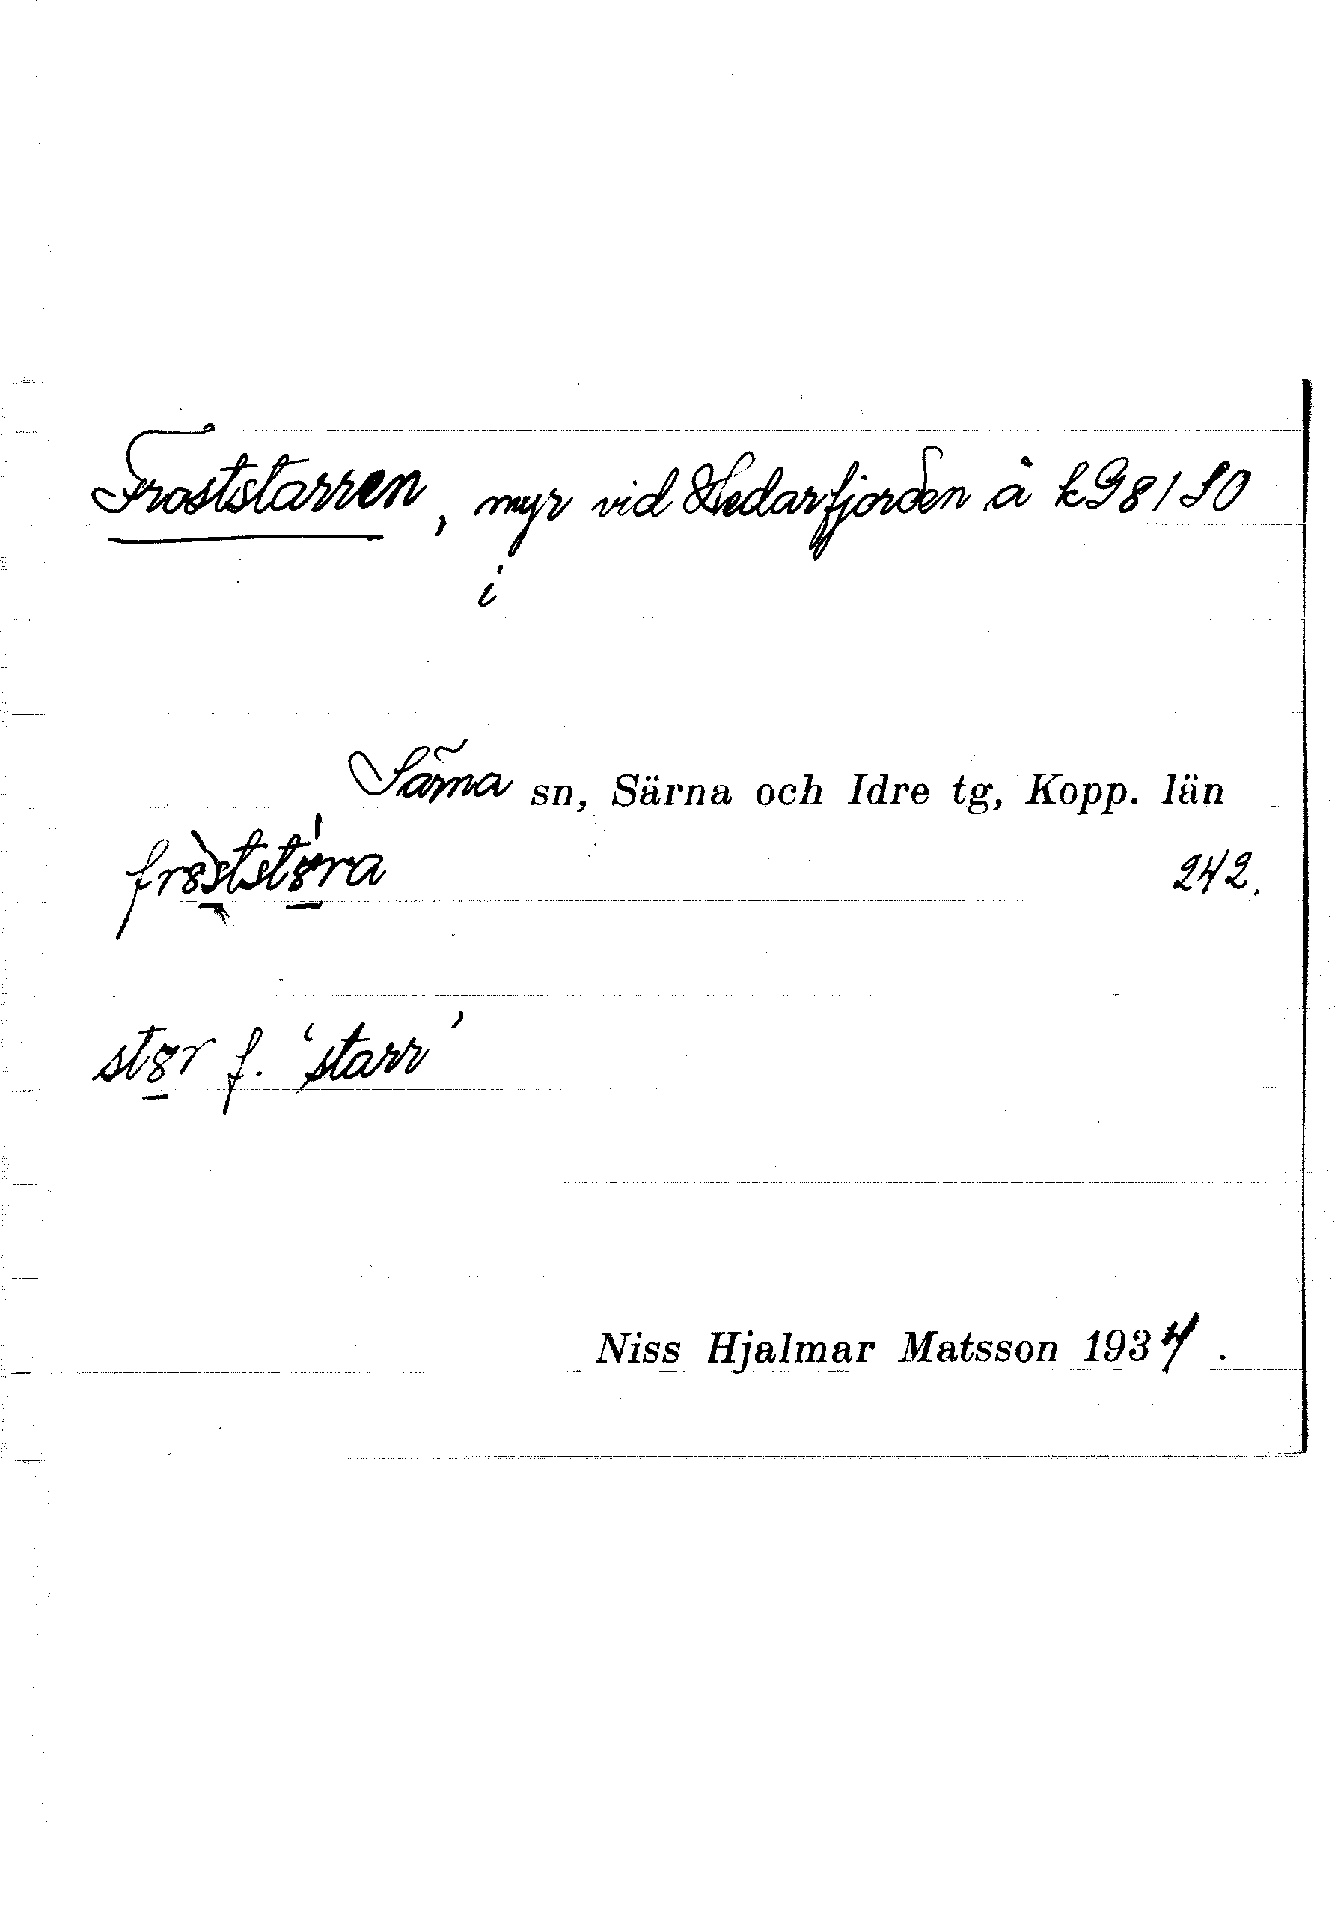 Froststarren, myr vid Hedarfjorden å k 98/SO
i
Särna sn, Särna och Idre tg, Kopp. län
242.
f. 'starr'
Niss Hjalmar Matsson 1934.